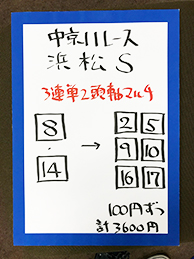 中京11レース
浜松S
3連単2頭軸マルチ
8 . 14 → 2 5 9 10 16 17
100円ずつ
計3600円